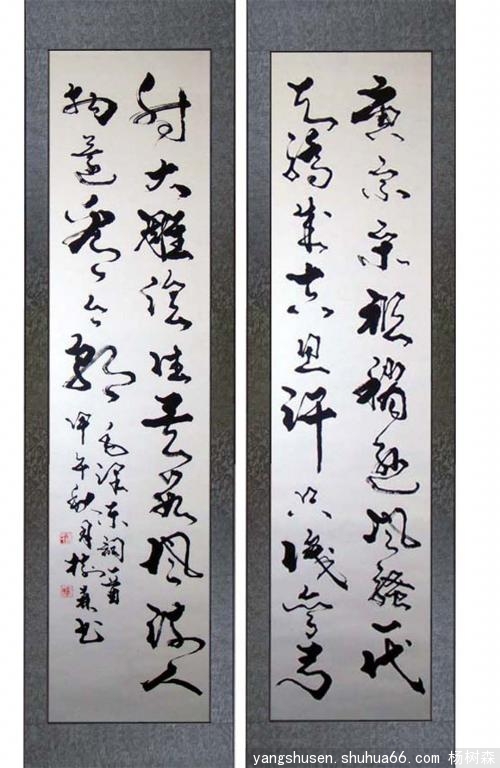 唐宗宋祖稍逊风骚一代
天骄成吉思汗只识弯弓
射大雕俱往矣数风流人
物还看今朝
毛泽东词一首
甲午秋月树森书
yangshusen.shuhua66.com 杨树森